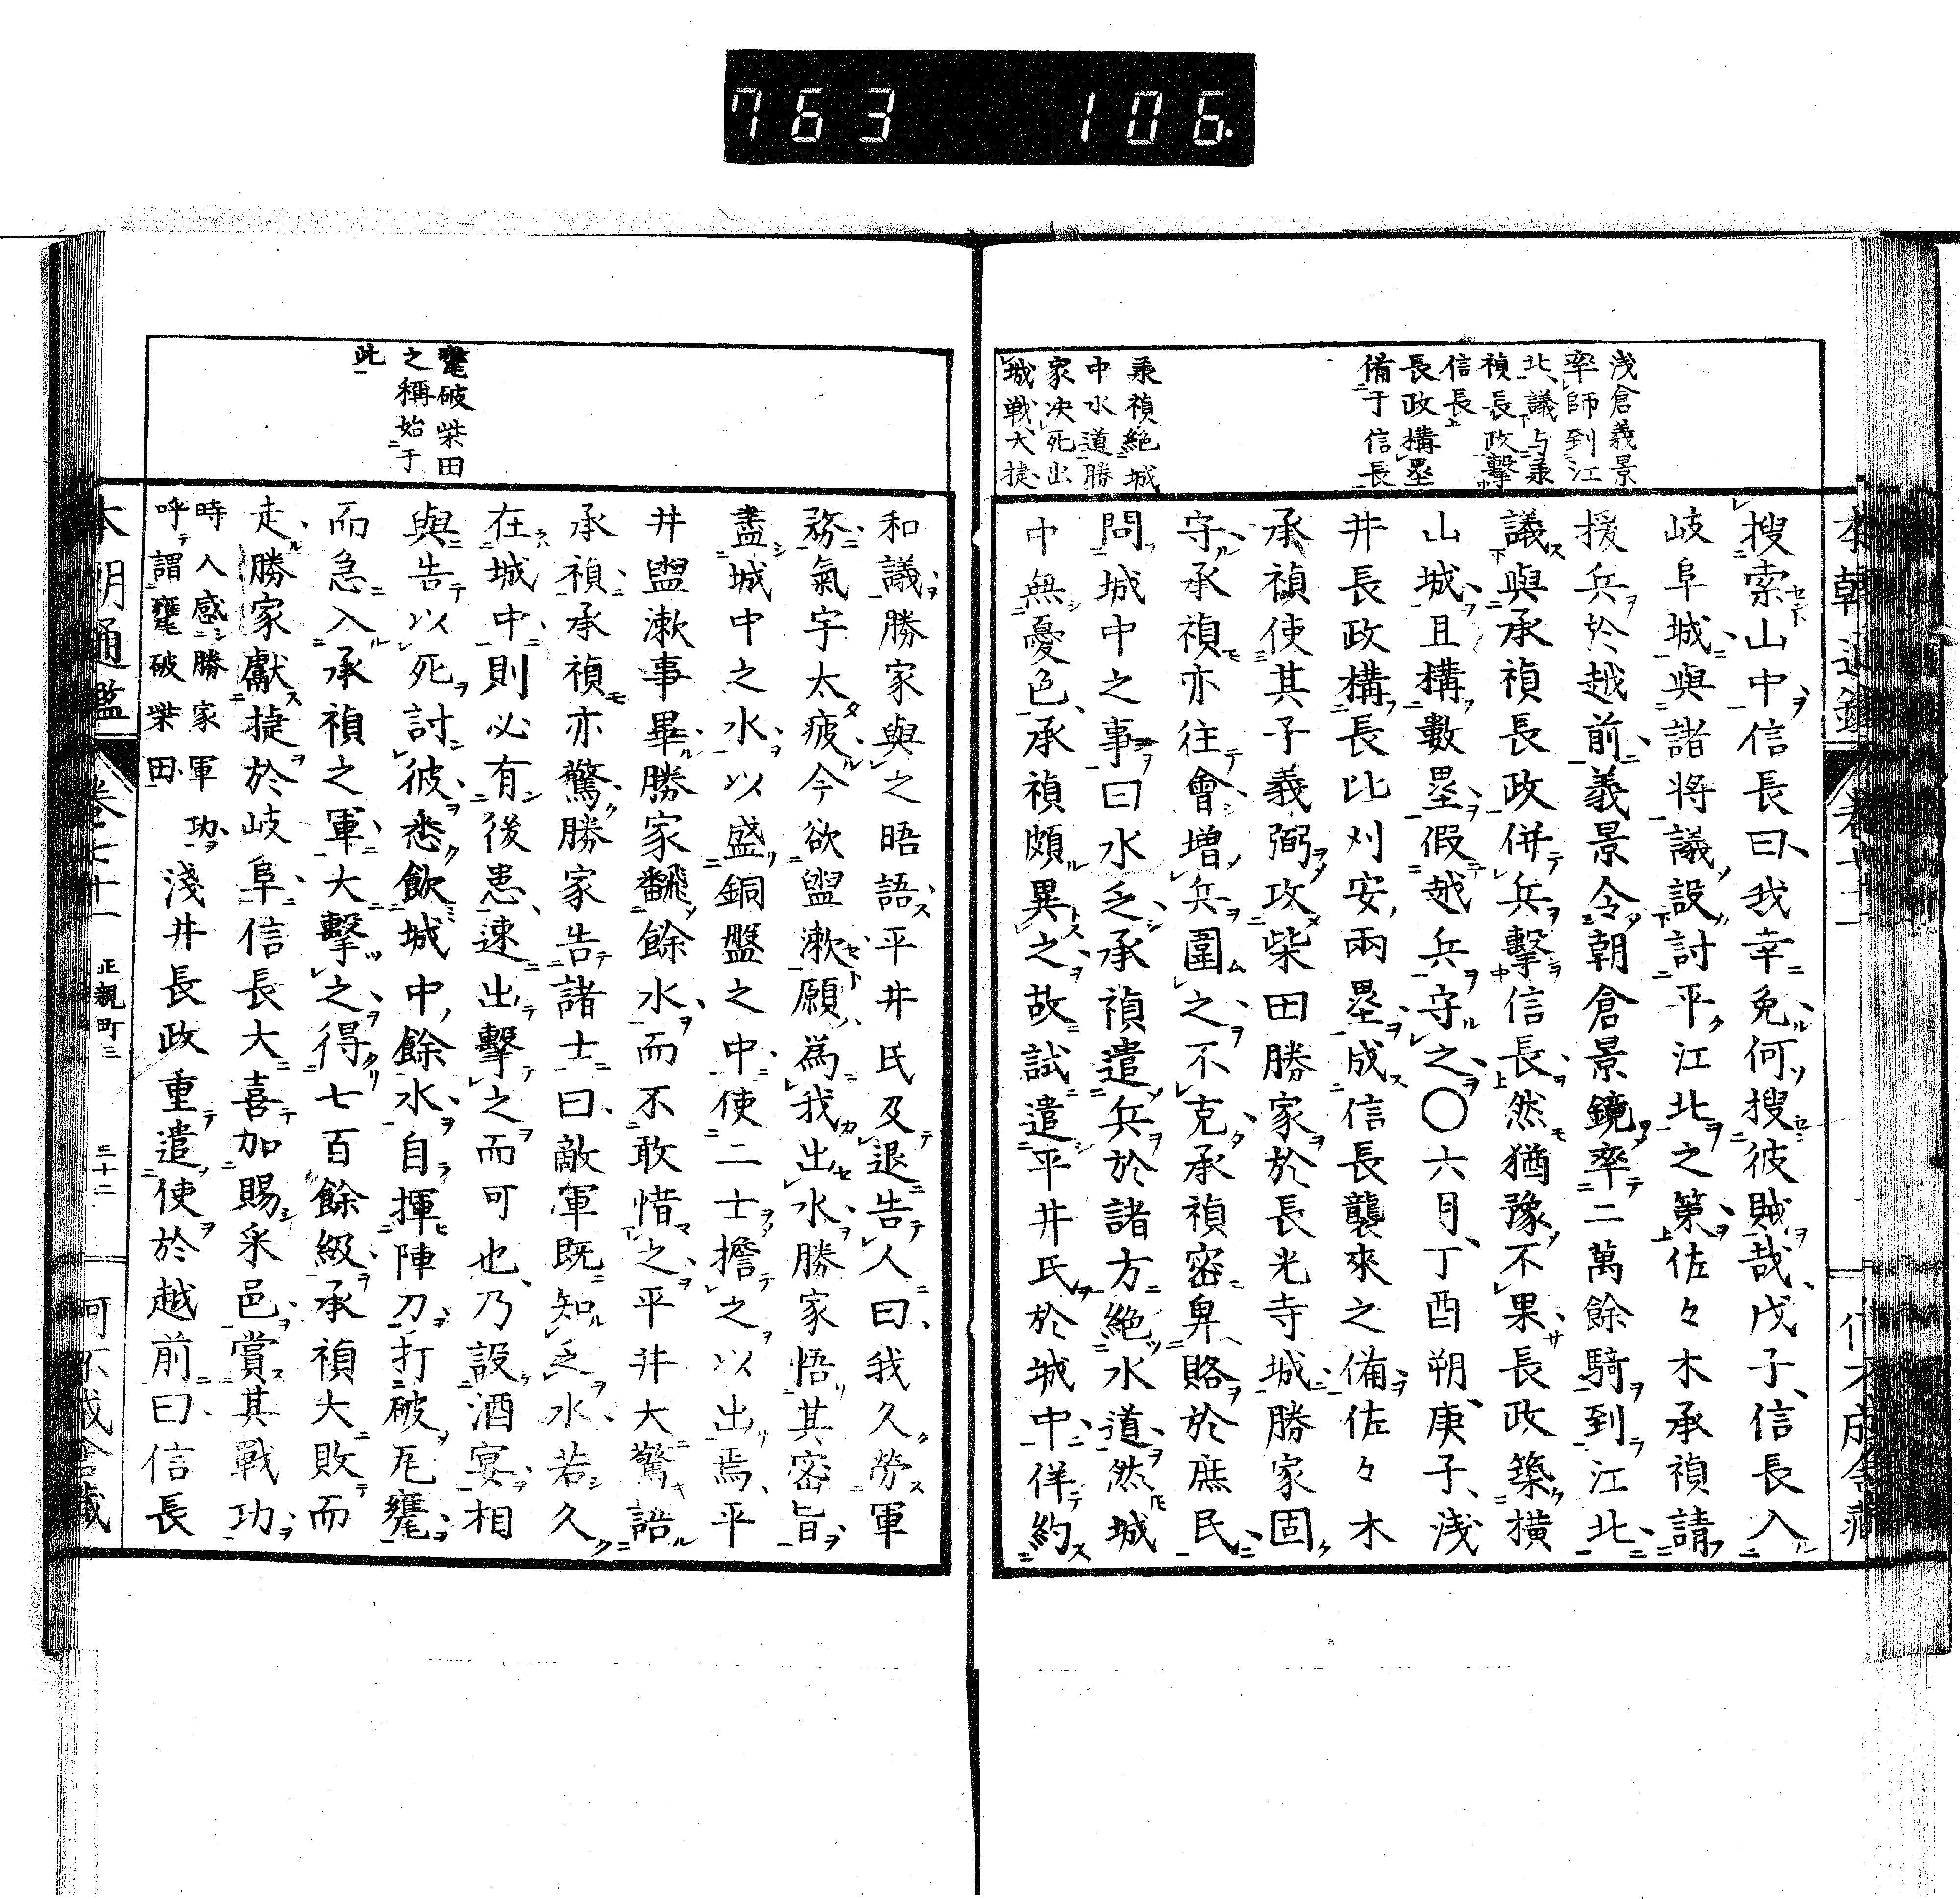 763 106.
淺倉義景
率師到江
北議与承
禎長政擊
信長
長政構壘
備于信長
承禎絕城
中水道勝
家决死出
城戰大捷
搜索山中信長曰我幸免何搜彼賊哉戊子信長入
岐阜城與諸將議設討平江北之第佐々木承禎請
援兵於越前義景令朝倉景鏡率二萬餘騎到江北
議與承禎長政併兵擊信長然猶豫不果長政築橫
山城且構數壘假越兵守之〇六月丁酉朔庚子淺
井長政構長比刈安兩壘成信長襲來之備佐々木
承禎使其子義弼攻柴田勝家於長光寺城勝家固
守承禎亦往會增兵圍之不克承禎密卑賂於庶民
問城中之事曰水乏承禎遣兵於諸方絕水道然城
中無憂色承禎頗異之故試遣平井氏於城中佯約
甕破柴田
之稱始于
此
和議勝家與之晤語平井氏及退告人曰我久勞軍
務氣宇太疲今欲盥漱願為我出水勝家悟其密旨
盡城中之水以盛銅盤之中使二士擔之以出焉平
井盥漱事畢勝家翻餘水而不敢惜之平井大驚語
承禎承禎亦驚勝家告諸士曰敵軍既知乏水若久
在城中則必有後患速出擊之而可也乃設酒宴相
與告以死討彼悉飲城中餘水自揮陣刀打破瓦甕
而急入承禎之軍大擊之得七百餘級承禎大敗而
走勝家獻捷於岐阜信長大喜加賜采邑賞其戰功
時人感勝家軍功
呼謂甕破柴田
淺井長政重遣使於越前曰信長
本朝通鑑
卷七十一
正親町三
三十二